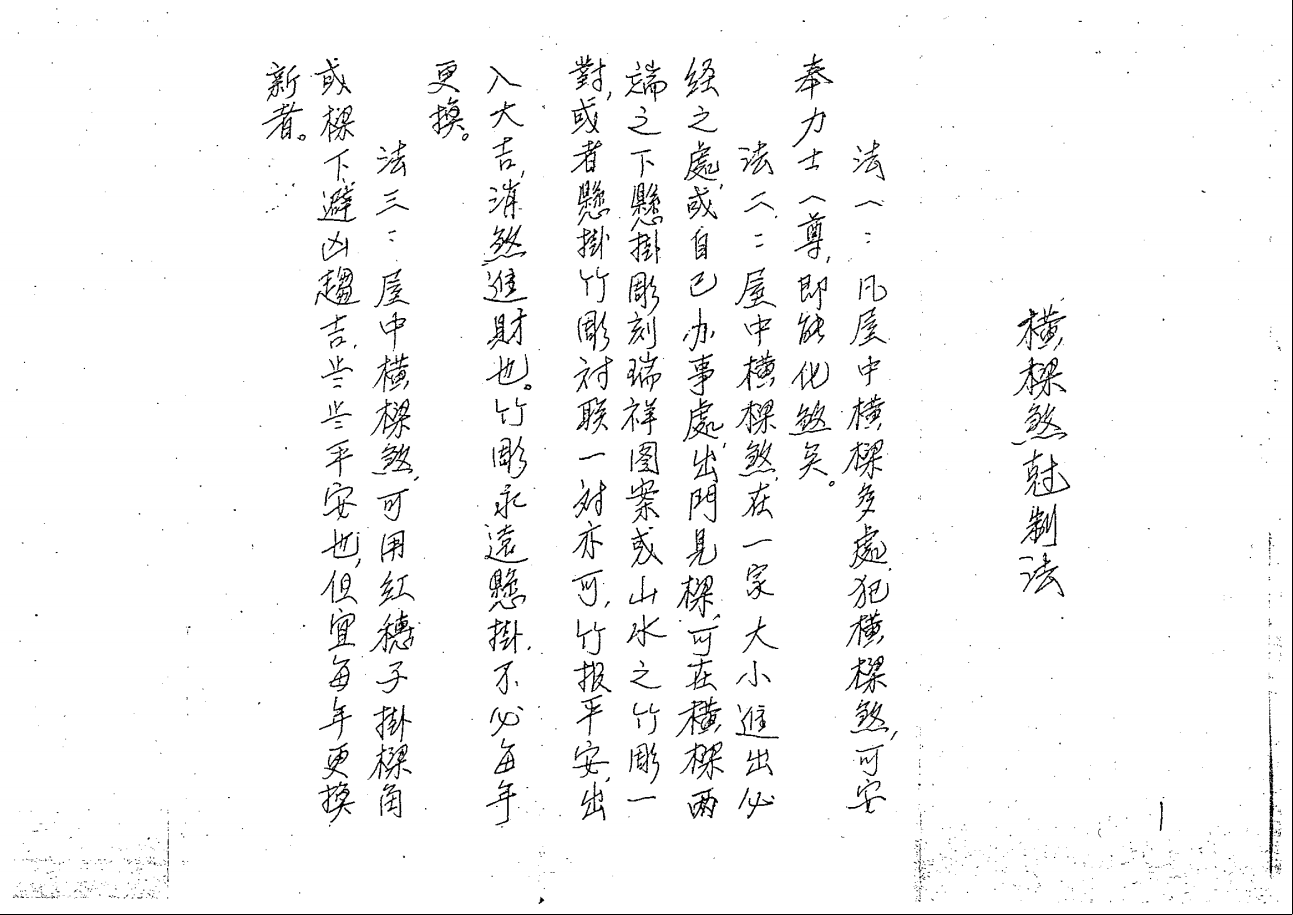 橫樑煞尅制法
法一：凡屋中橫樑多處，犯橫樑煞，可安
奉力士一尊，即能化煞矣。
法二：屋中橫樑煞，在一家大小進出必
经之處，或自己办事處，出門見樑，可在橫樑兩
端之下懸掛彫刻瑞祥图案或山水之竹彫一
對，或者懸掛竹彫対联一対亦可，竹报平安，出
入大吉，消煞進財也。竹彫永遠懸掛，不必每年
更換。
法三：屋中橫樑煞，可用紅穗子掛樑角
或樑下，避凶趨吉，歩歩平安也，但宜每年更換
新者。
1